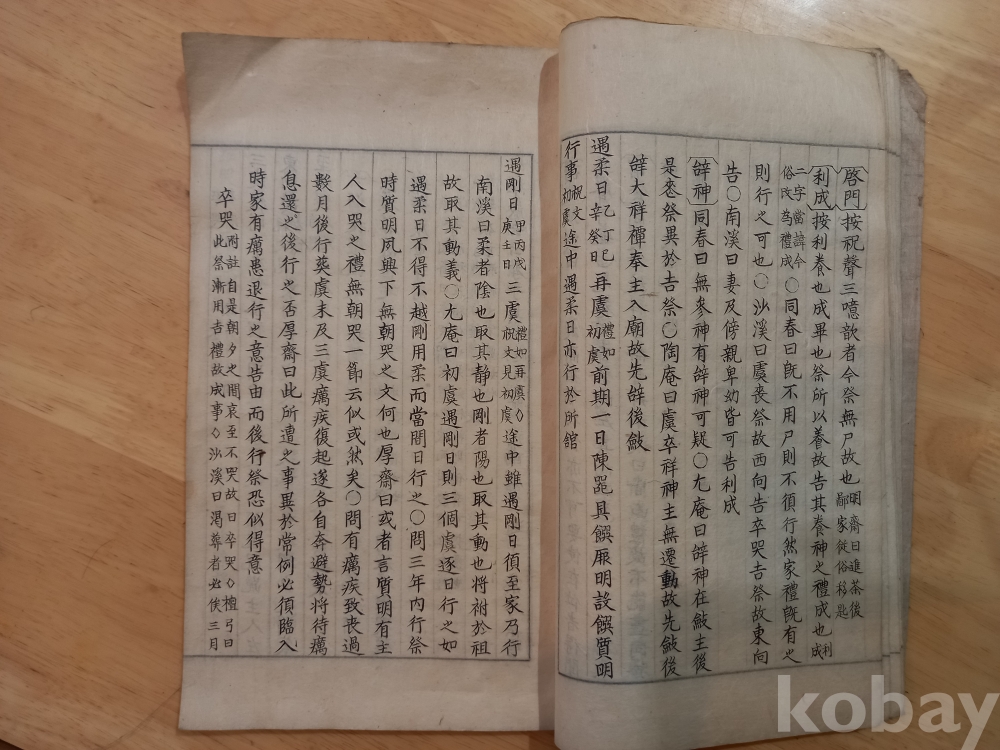 啓門 按祝聲三噫歆者今祭無尸故也 明齋曰進茶後鄙家從俗移匙
利成 按利養也成畢也祭所以養故告其養神之禮成也 利成
二字當諱今俗改爲禮成 ○同春曰旣不用尸則不須行然家禮旣有之
則行之可也○沙溪曰虞喪祭故西向告卒哭吉祭故東向
告○南溪曰妻及傍親卑幼皆可告利成
辭神 同春曰無參神有辭神可疑○尤庵曰辭神在斂主後
是喪祭異於吉祭○陶庵曰虞卒祥神主無遷動故先斂後
辭大祥禫奉主入廟故先辭後斂
遇柔日 乙丁巳辛癸日 再虞 禮如初虞 前期一日陳器具饌厥明設饌質明
行事 祝文初虞 途中遇柔日亦行於所館
遇剛日 甲丙戊庚壬日 三虞 禮如再虞◇祝文見初虞 途中雖遇剛日須至家乃行
南溪曰柔者陰也取其静也剛者陽也取其動也将祔於祖
故取其動義○尤庵曰初虞遇剛日則三個虞逐日行之如
遇柔日不得不越剛用柔而當間日行之○問三年内行祭
時質明夙興下無朝哭之文何也厚齋曰或者言質明有主
人入哭之禮無朝哭一節云似或然矣○問有癘疾致喪過
數月後行葬虞未及三虞癘疾復起遂各自奔避勢将待癘
息還之後行之否厚齋曰此所遭之事異於常例必須臨入
時家有癘患退行之意告由而後行祭恐似得意
卒哭 附註自是朝夕之間哀至不哭故曰卒哭◇檀弓曰
此祭漸用吉禮故成事◇沙溪曰渴葬者必俟三月